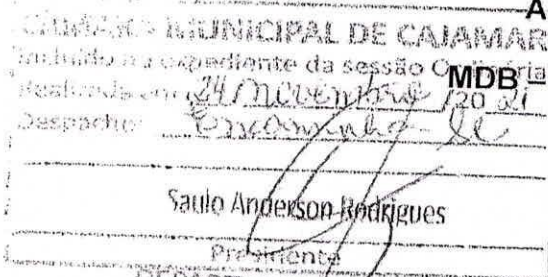 A
CÂMARA MUNICIPAL DE CAJAMAR
Incluído no expediente da sessão Ordinária
MDB
Realizada em 24/novembro/20 21
Despacho: Encaminha-se
Saulo Anderson Rodrigues
Presidente